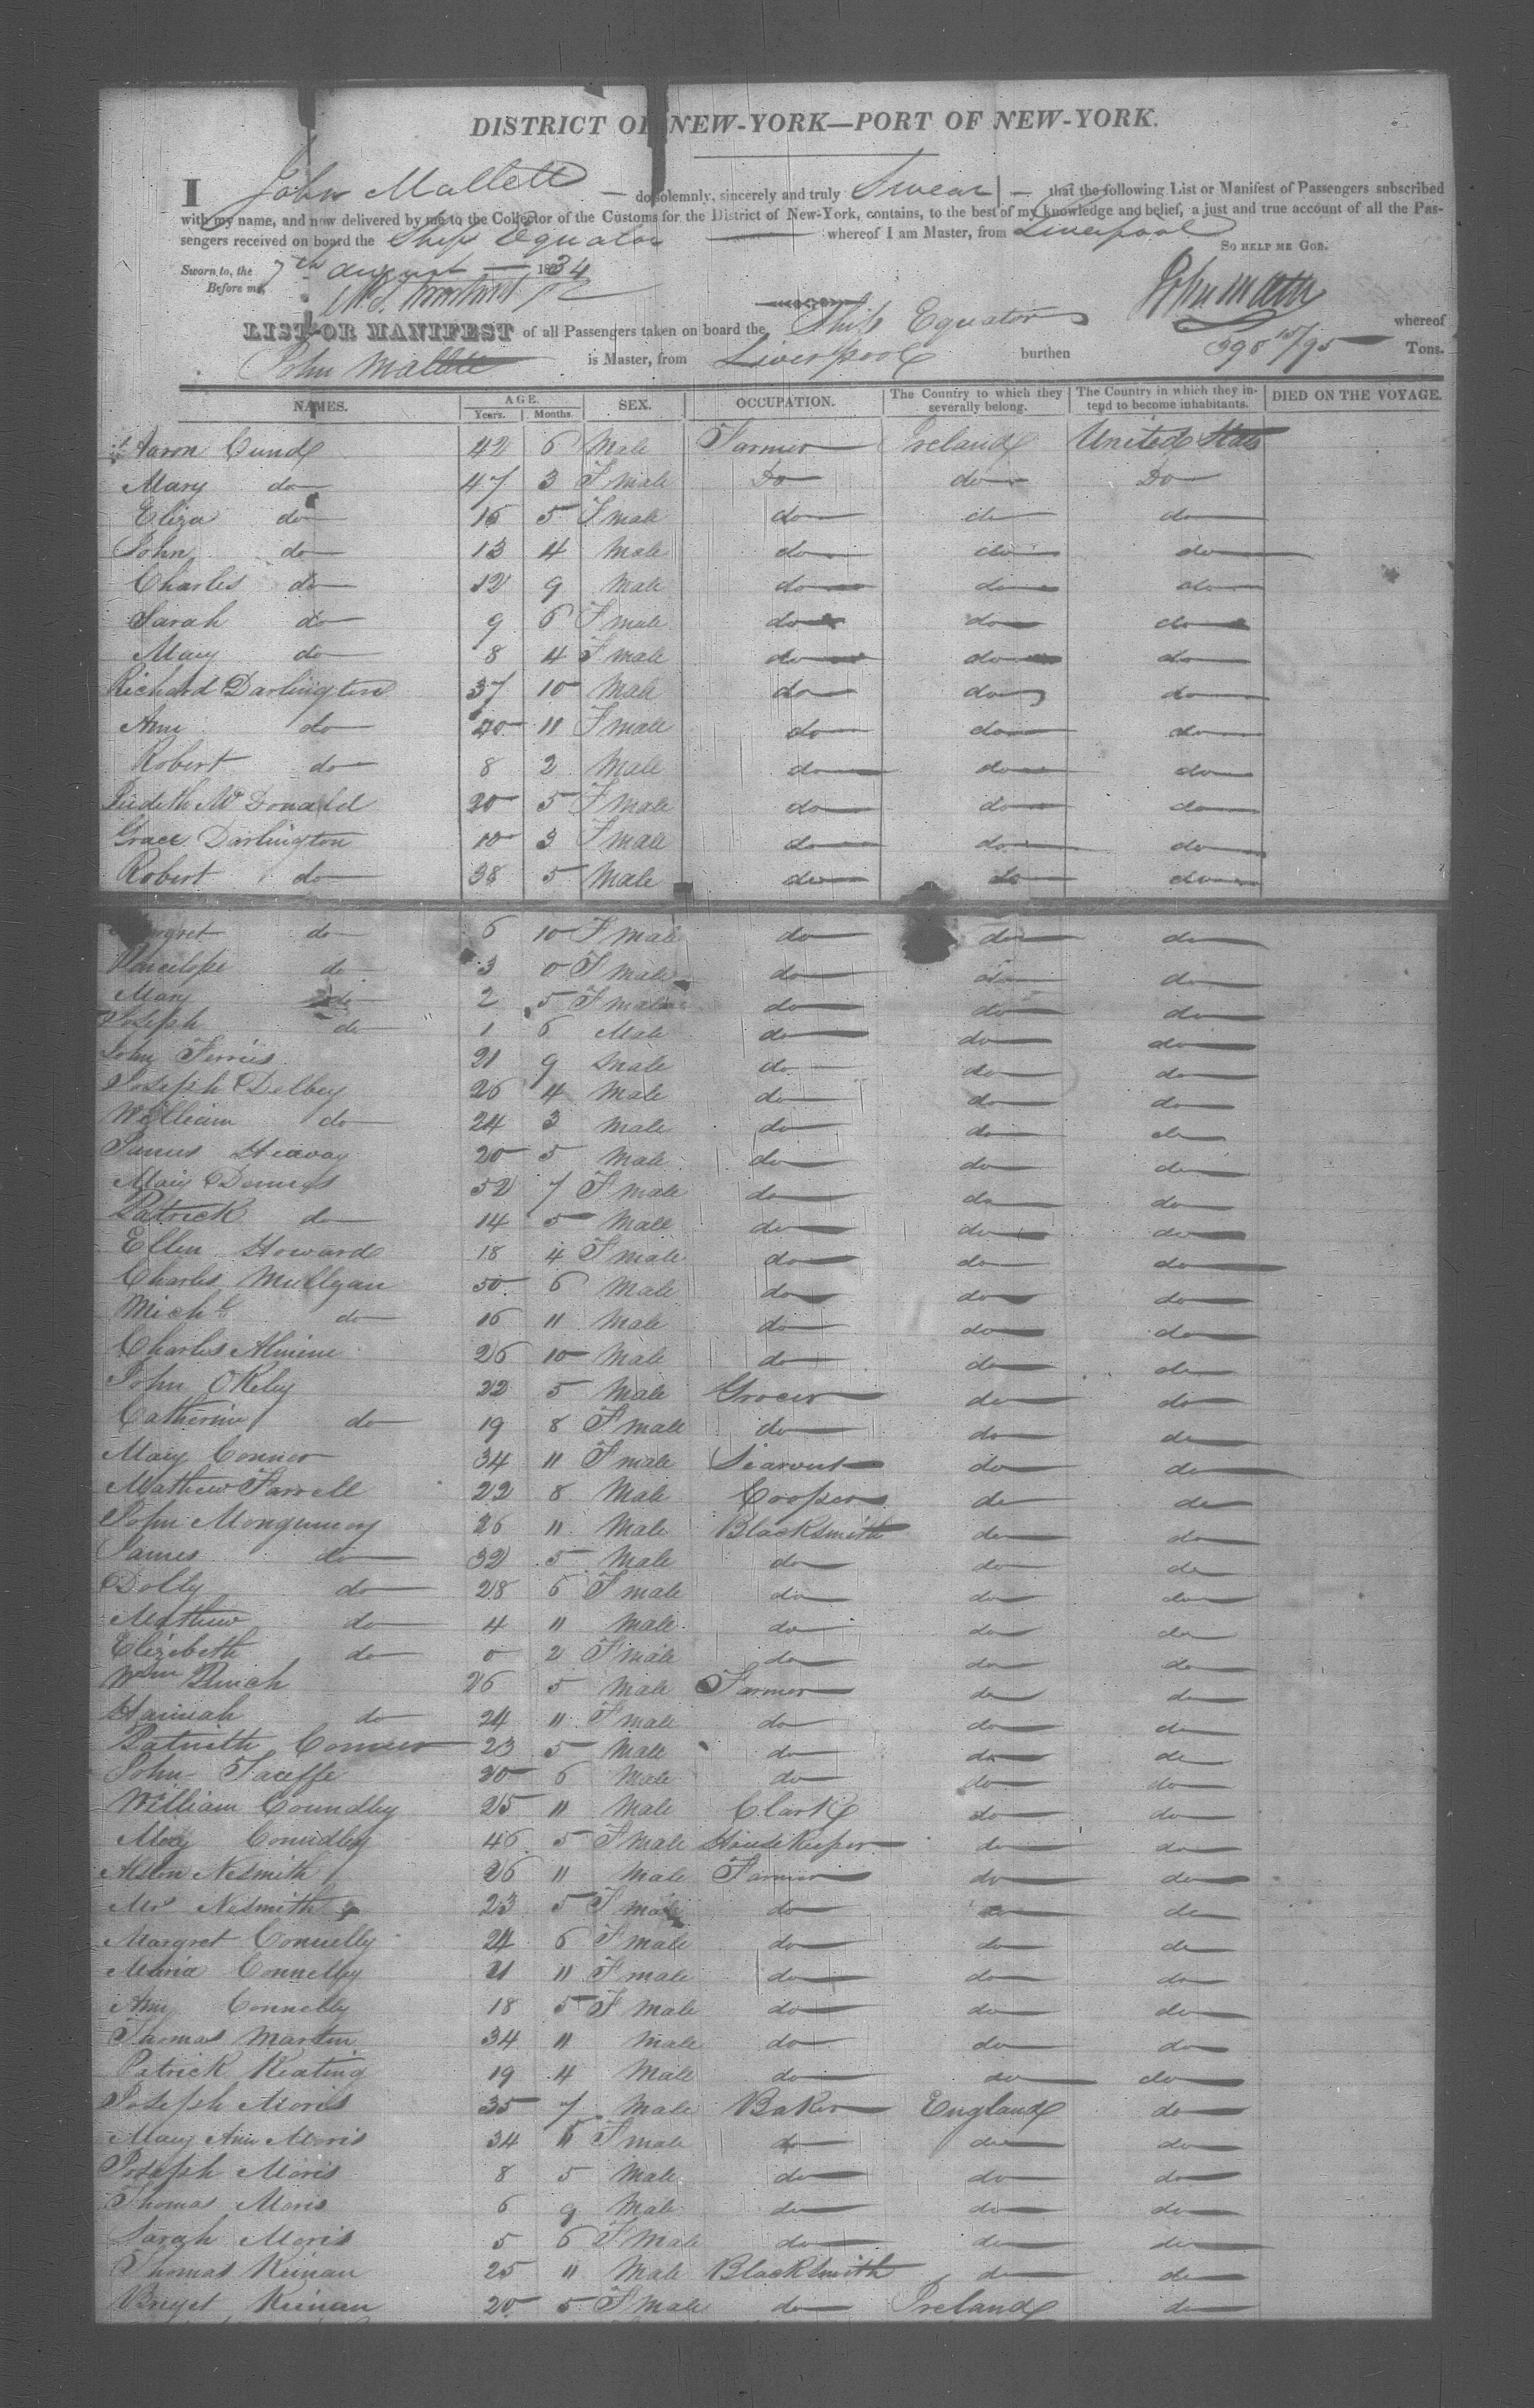 DISTRICT OF NEW-YORK—PORT OF NEW-YORK.
I John Mallett — do solemnly, sincerely and truly Swear — that the following List or Manifest of Passengers subscribed
with my name, and now delivered by me to the Collector of the Customs for the District of New-York, contains, to the best of my knowledge and belief, a just and true account of all the Pas-
sengers received on board the Ship Equator whereof I am Master, from Liverpool
SO HELP ME GOD.
Sworn to, the 7th August 1834
Before me,
LIST OR MANIFEST of all Passengers taken on board the Ship Equator whereof
John Mallett is Master, from Liverpool burthen 398 15/95 Tons.
NAMES. AGE. Years. Months. SEX. OCCUPATION. The Country to which they severally belong. The Country in which they intend to become inhabitants. DIED ON THE VOYAGE.
Aaron Cund 42 6 Male Farmer Ireland United States
Mary do 47 3 Fmale Do do Do
Eliza do 15 5 Fmale do do do
John do 13 4 Male do do do
Charles do 12 9 Male do do do
Sarah do 9 6 Fmale do do do
Mary do 8 4 Fmale do do do
Richard Darlington 37 10 Male do do do
Ann do 40 11 Fmale do do do
Robert do 8 2 Male do do do
Judith McDonald 20 5 Fmale do do do
Grace Darlington 10 3 Fmale do do do
Robert do 38 5 Male do do do
do 6 10 Fmale do do do
Penelope do 3 0 Fmale do do do
Mary do 2 5 Fmale do do do
Joseph do 1 6 Male do do do
John Ferris 21 9 Male do do do
Joseph Delbey 26 4 Male do do do
William do 24 3 Male do do do
James 20 5 Male do do do
Mary 52 7 Fmale do do do
Patrick do 14 5 Male do do do
Ellen Howard 18 4 Fmale do do do
Charles Mullgan 50 6 Male do do do
Michl do 16 11 Male do do do
Charles 26 10 Male do do do
John OKely 22 5 Male Grocer do do
Catherine do 19 8 Fmale do do do
Mary Connor 34 11 Fmale Siarvent do do
Mathew Farrell 22 8 Male Cooper do do
John Mongumery 26 11 Male Blacksmith do do
James do 32 5 Male do do do
Dolly do 28 6 Fmale do do do
Mathew do 4 11 Male do do do
Elizebeth do 0 2 Fmale do do do
Wm 26 5 Male Farmer do do
Hannah do 24 11 Fmale do do do
23 5 Male do do do
John 30 6 Male do do do
William Coundley 25 11 Male Clark do do
Coundley 46 5 Fmale Housekeeper do do
Nesmith 26 11 Male Farmer do do
Mrs Nesmith 23 5 Fmale do do do
Margret Connelly 24 6 Fmale do do do
Maria Connelly 21 11 Fmale do do do
Ann Connelly 18 5 Fmale do do do
Thomas Martin 34 11 Male do do do
Patrick Keating 19 4 Male do do do
Joseph Moris 35 7 Male Baker England do
Mary Ann Moris 34 11 Fmale do do do
Joseph Moris 8 5 Male do do do
Thomas Moris 6 9 Male do do do
Sarah Moris 5 6 Fmale do do do
Thomas Keinan 25 11 Male Blacksmith do do
Briget Keinan 20 5 Fmale do Ireland do